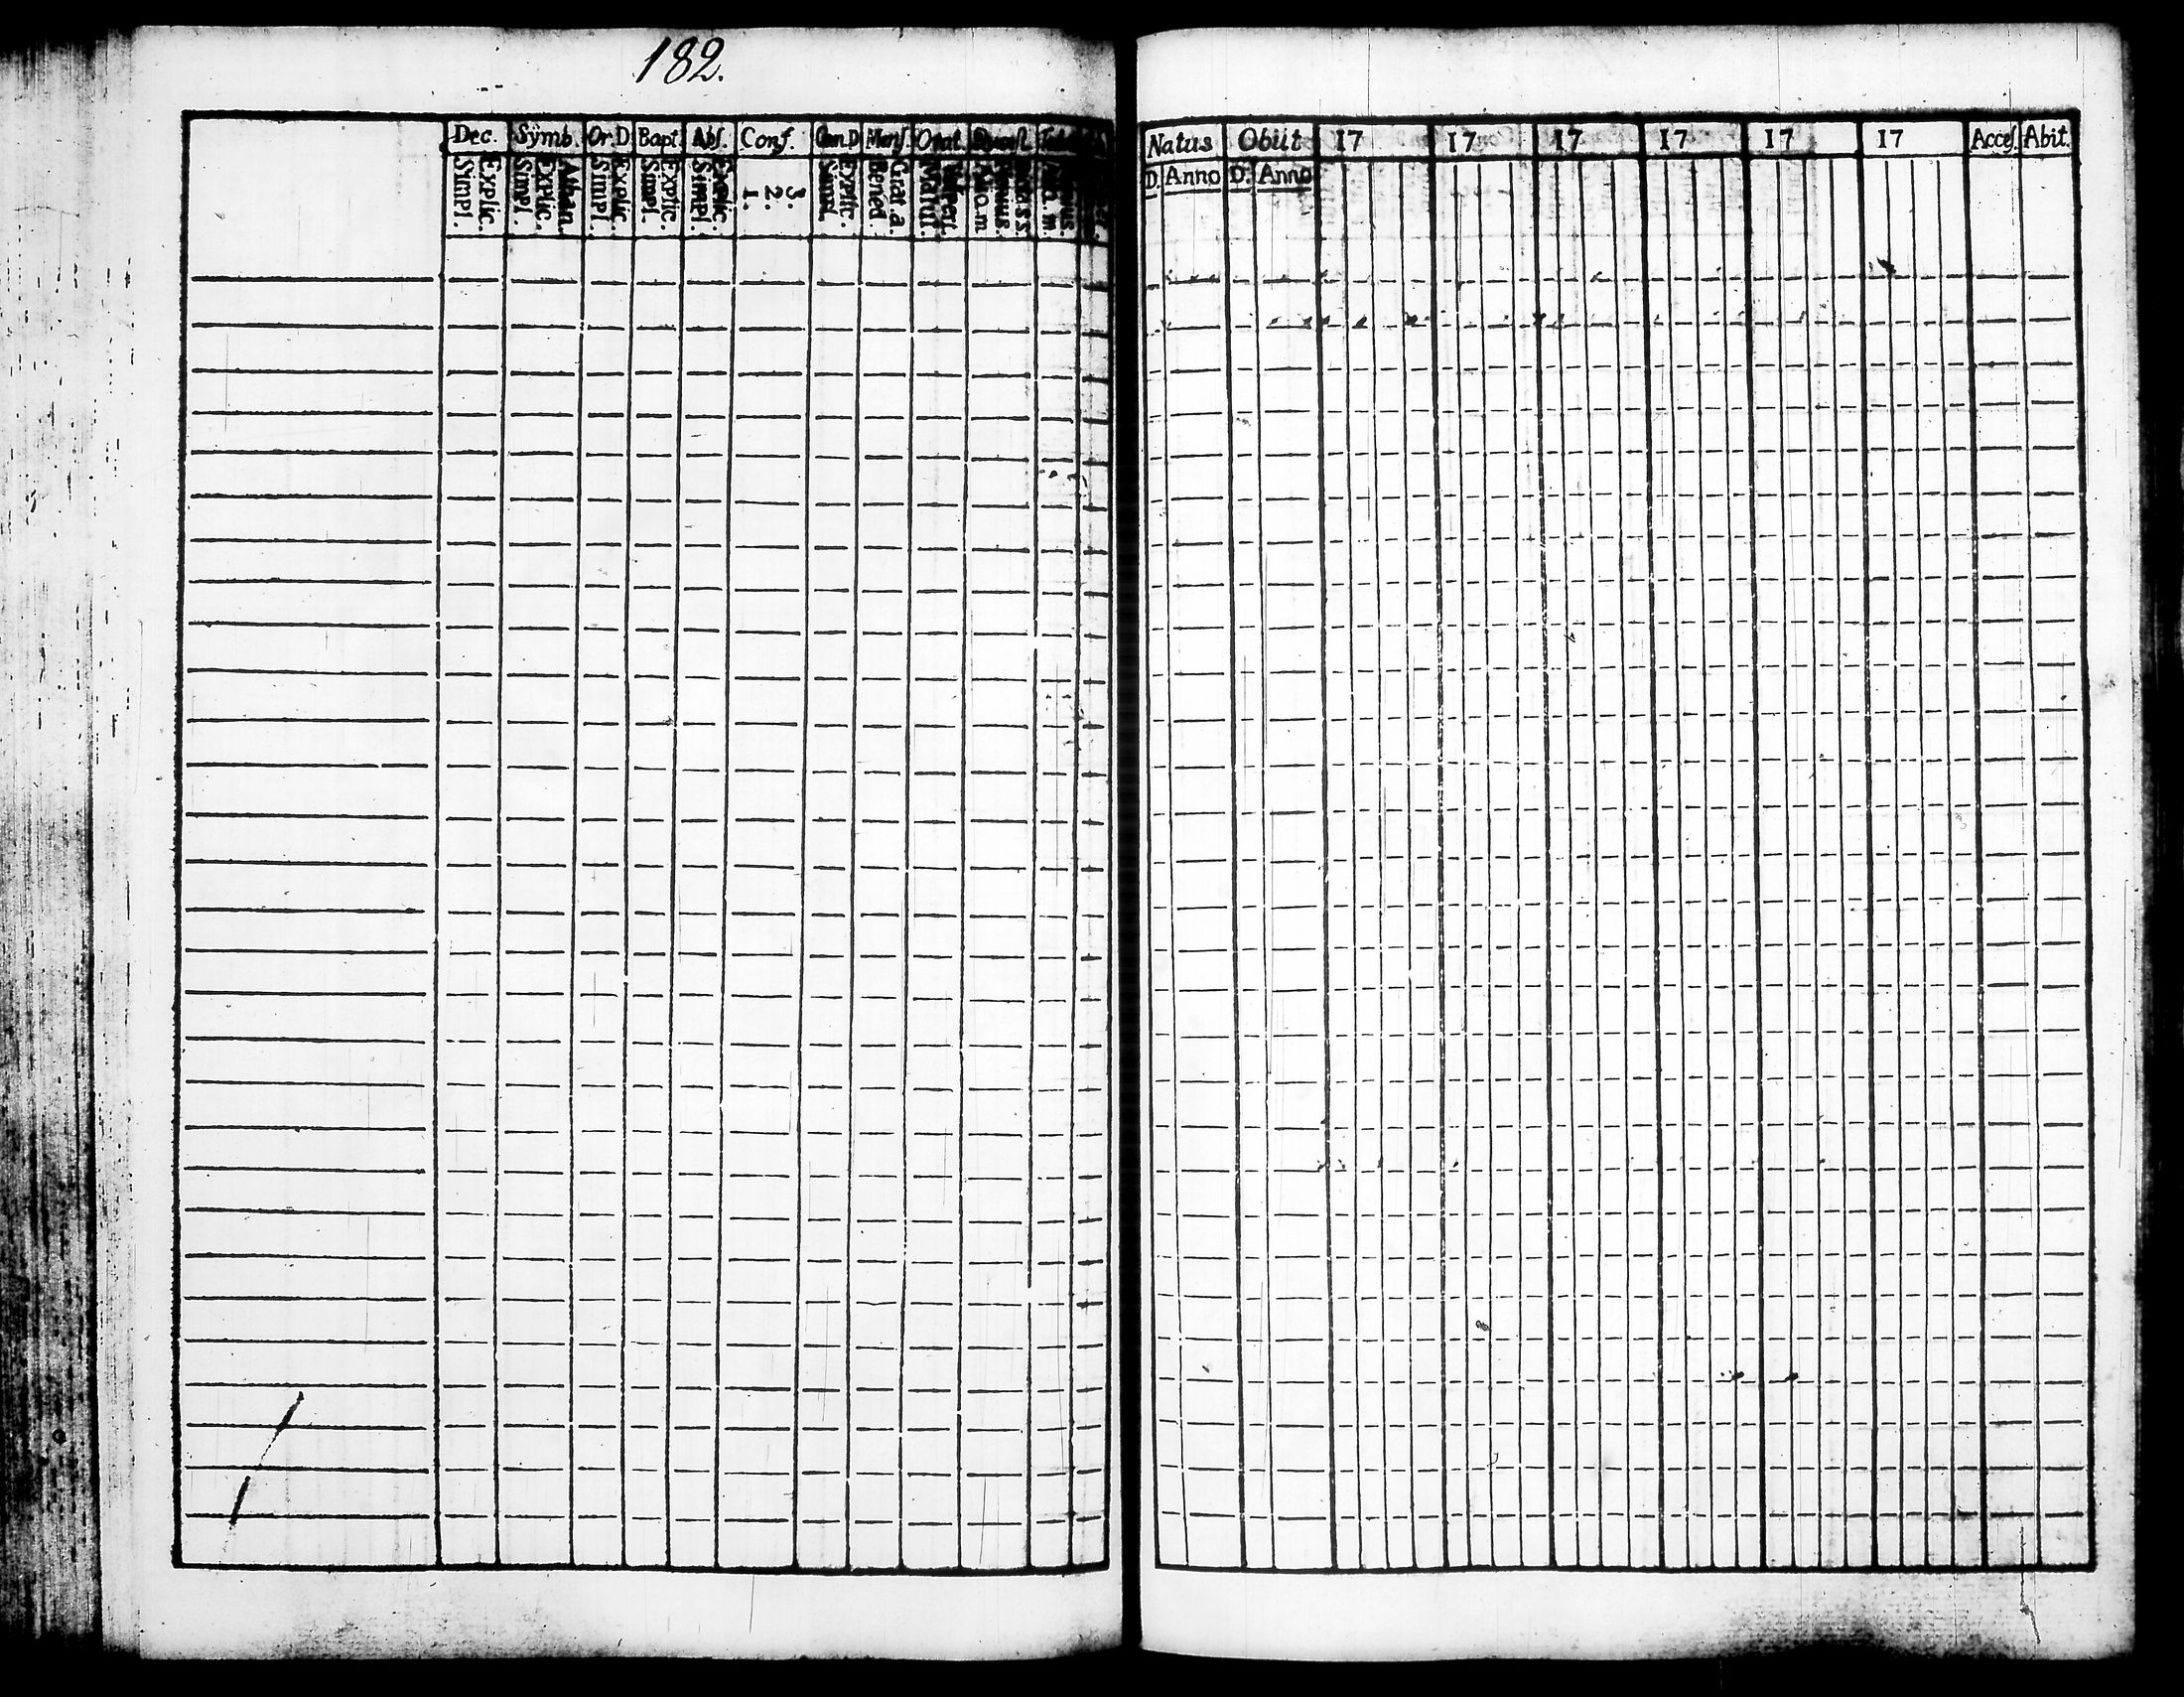 182.
Dec. Symb. Or.D Bapt. Abſ. Conf. Can.D Menſ Orat. Quæſt. Tab
Explic. Simpl. Athan. Explic. Simpl. Explic. Simpl. Explic. Simpl. Explic. Simpl. 3. 2. 1. Explic. Simpl. Grat.a. Bened. Veſpert. Matut.
Natus Obiit 17 17 17 17 17 17 Acceſ. Abit.
D. Anno D. Anno